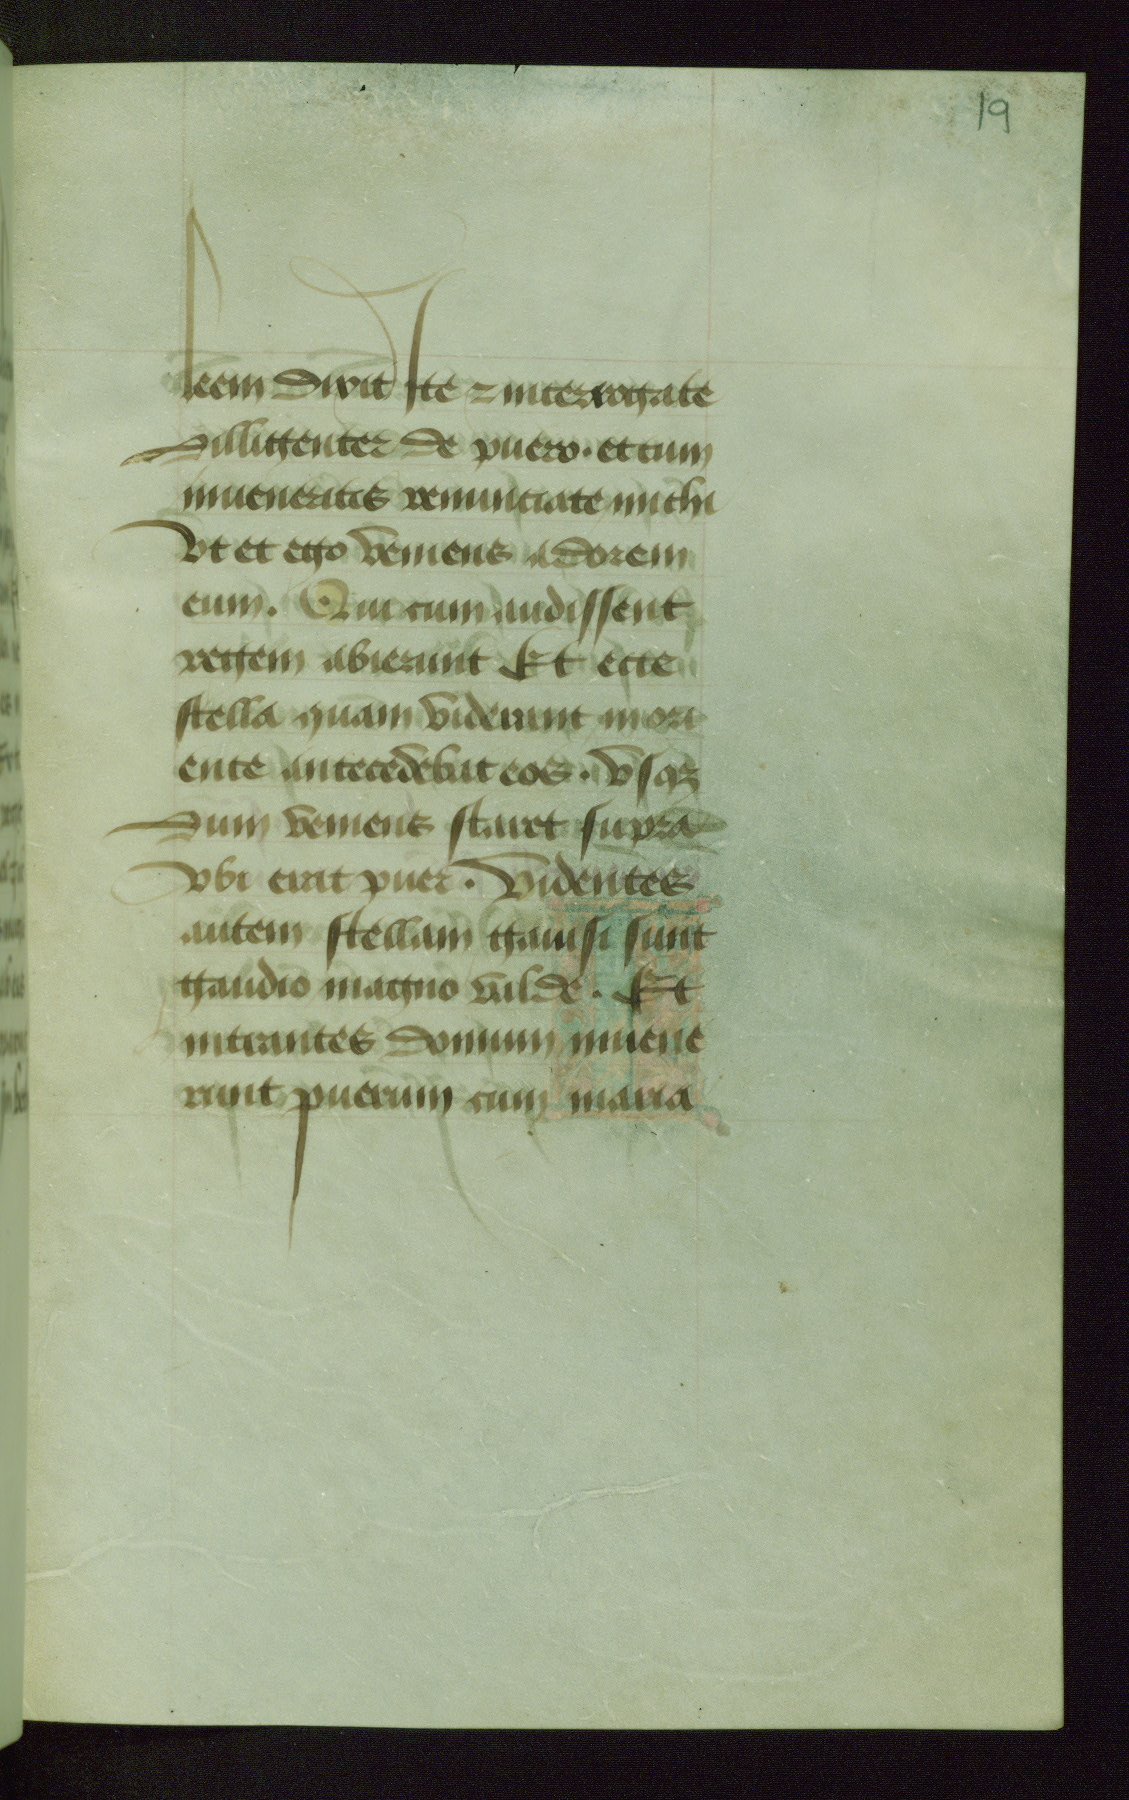 19
leem dixit Ite ⁊ interrogate
dilligenter de puero. et cum
inueneritis renunciate michi
vt et ego veniens adorem
eum. Qui cum audissent
regem abierunt Et ecce
stella quam viderunt in ori
ente antecedebat eos. vsqꝫ
dum veniens staret supra
vbi erat puer. Videntes
autem stellam gauisi sunt
gaudio magno valde. Et
intrantes domum inuene
runt puerum cum maria